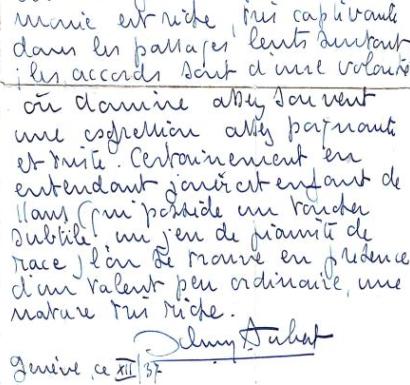 monie est riche, très captivante
dans les passages lents surtout
; les accords sont d'une
où domine assez souvent
une expression assez poignante
et triste. Certainement en
entendant jouer cet enfant de
11 ans (qui possède un toucher
subtile, un jeu de pianiste de
race, l'on se trouve en présence
d'un talent peu ordinaire, une
nature très riche.
Aubert
Genève, ce XII/37